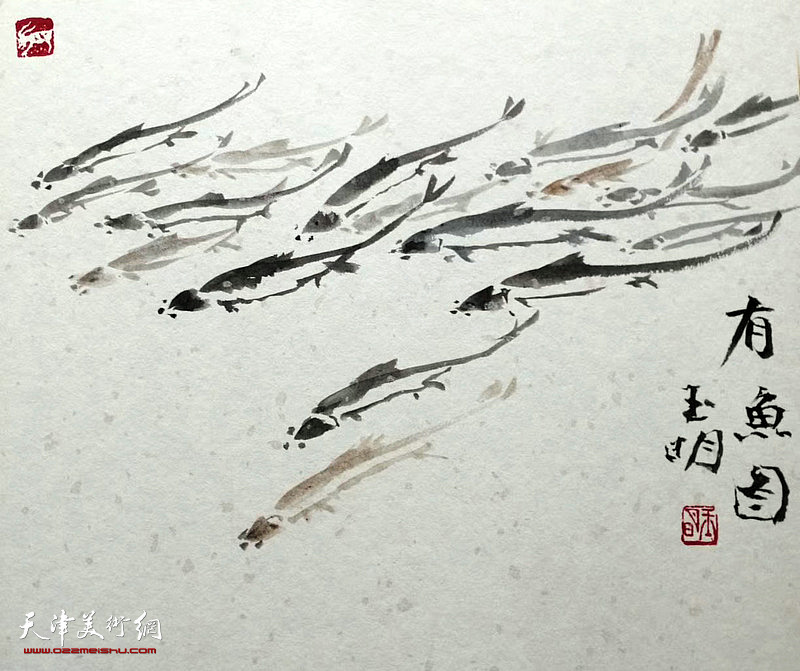 有魚图
玉明
天津美術網
www.022meishu.com